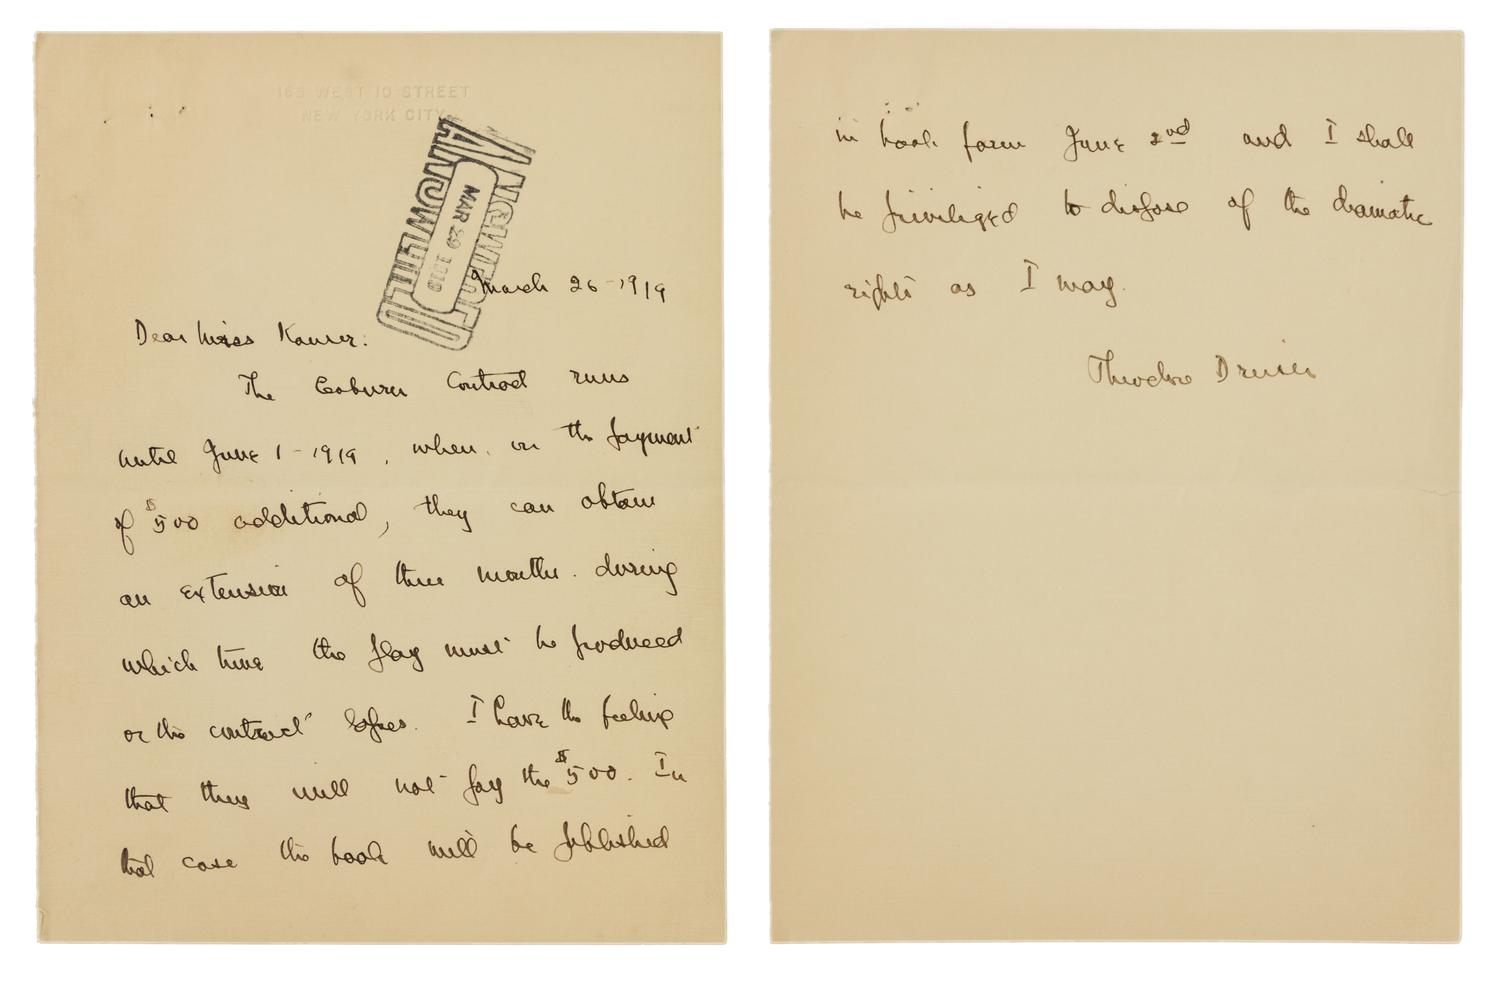 165 WEST 10 STREET
NEW YORK CITY
ACKNOWLEDGED
ANSWERED
MAR 29 1919
March 26-1919
Dear Miss Kauser:
The Coburn Contract runs
until June 1-1919, when, on the payment
of $500 additional, they can obtain
an extension of three months. during
which time the play must be produced
or the contract lapses. I have the feeling
that they will not pay the $500. In
that case the book will be published
in book form June 2nd and I shall
be priviliged to dispose of the dramatic
rights as I may.
Theodore Dreiser